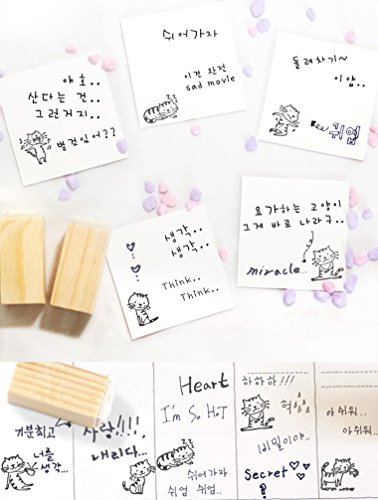 쉬어가자
이건 완전
sad movie
야호..
산다는 건..
그런거지..
별것있어??
돌려차기~
이얍..
귀엽
생각..
생각..
Think..
Think..
요가하는 고양이
그게 바로 나라구..
miracle..
기분최고
너를
생각..
사랑!!!!
내리다...
Heart
I'm So HoT
쉬어가자
쉬엄 쉬엄..
하하하!!!
헉
비밀이야..
Secret
아쉬워..
아쉬워..